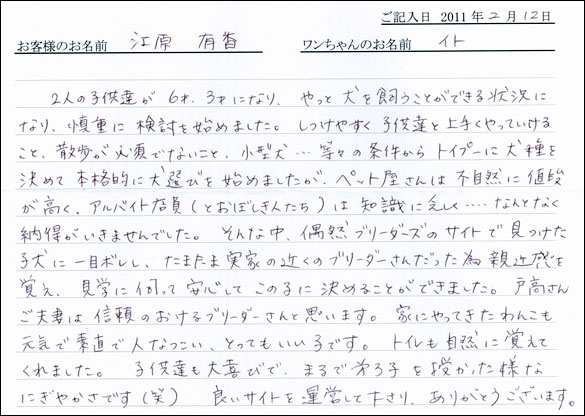 ご記入日 2011年2月12日
お客様のお名前 江原 有香 ワンちゃんのお名前 イト
2人の子供達が 6才、3才になり、やっと犬を飼うことができる状況に
なり、慎重に検討を始めました。しつけやすく子供達と上手くやっていける
こと、散歩が必須でないこと、小型犬…等々の条件からトイプーに犬種を
決めて本格的に犬選びを始めましたが、ペット屋さんは不自然に値段
が高く、アルバイト店員(とおぼしき人たち)は知識に乏しく‥‥なんとなく
納得がいきませんでした。そんな中、偶然ブリーダーズのサイトで見つけた
子犬に一目ボレし、たまたま実家の近くのブリーダーさんだった為親近感を
覚え、見学に伺って安心してこの子に決めることができました。戸高さん
ご夫妻は信頼のおけるブリーダーさんと思います。家にやってきたわんこも
元気で素直で人なつこい、とってもいい子です。トイレも自然に覚えて
くれました。子供達も大喜びで、まるで第3子を授かった様な
にぎやかさです(笑) 良いサイトを運営して下さり、ありがとうございます。